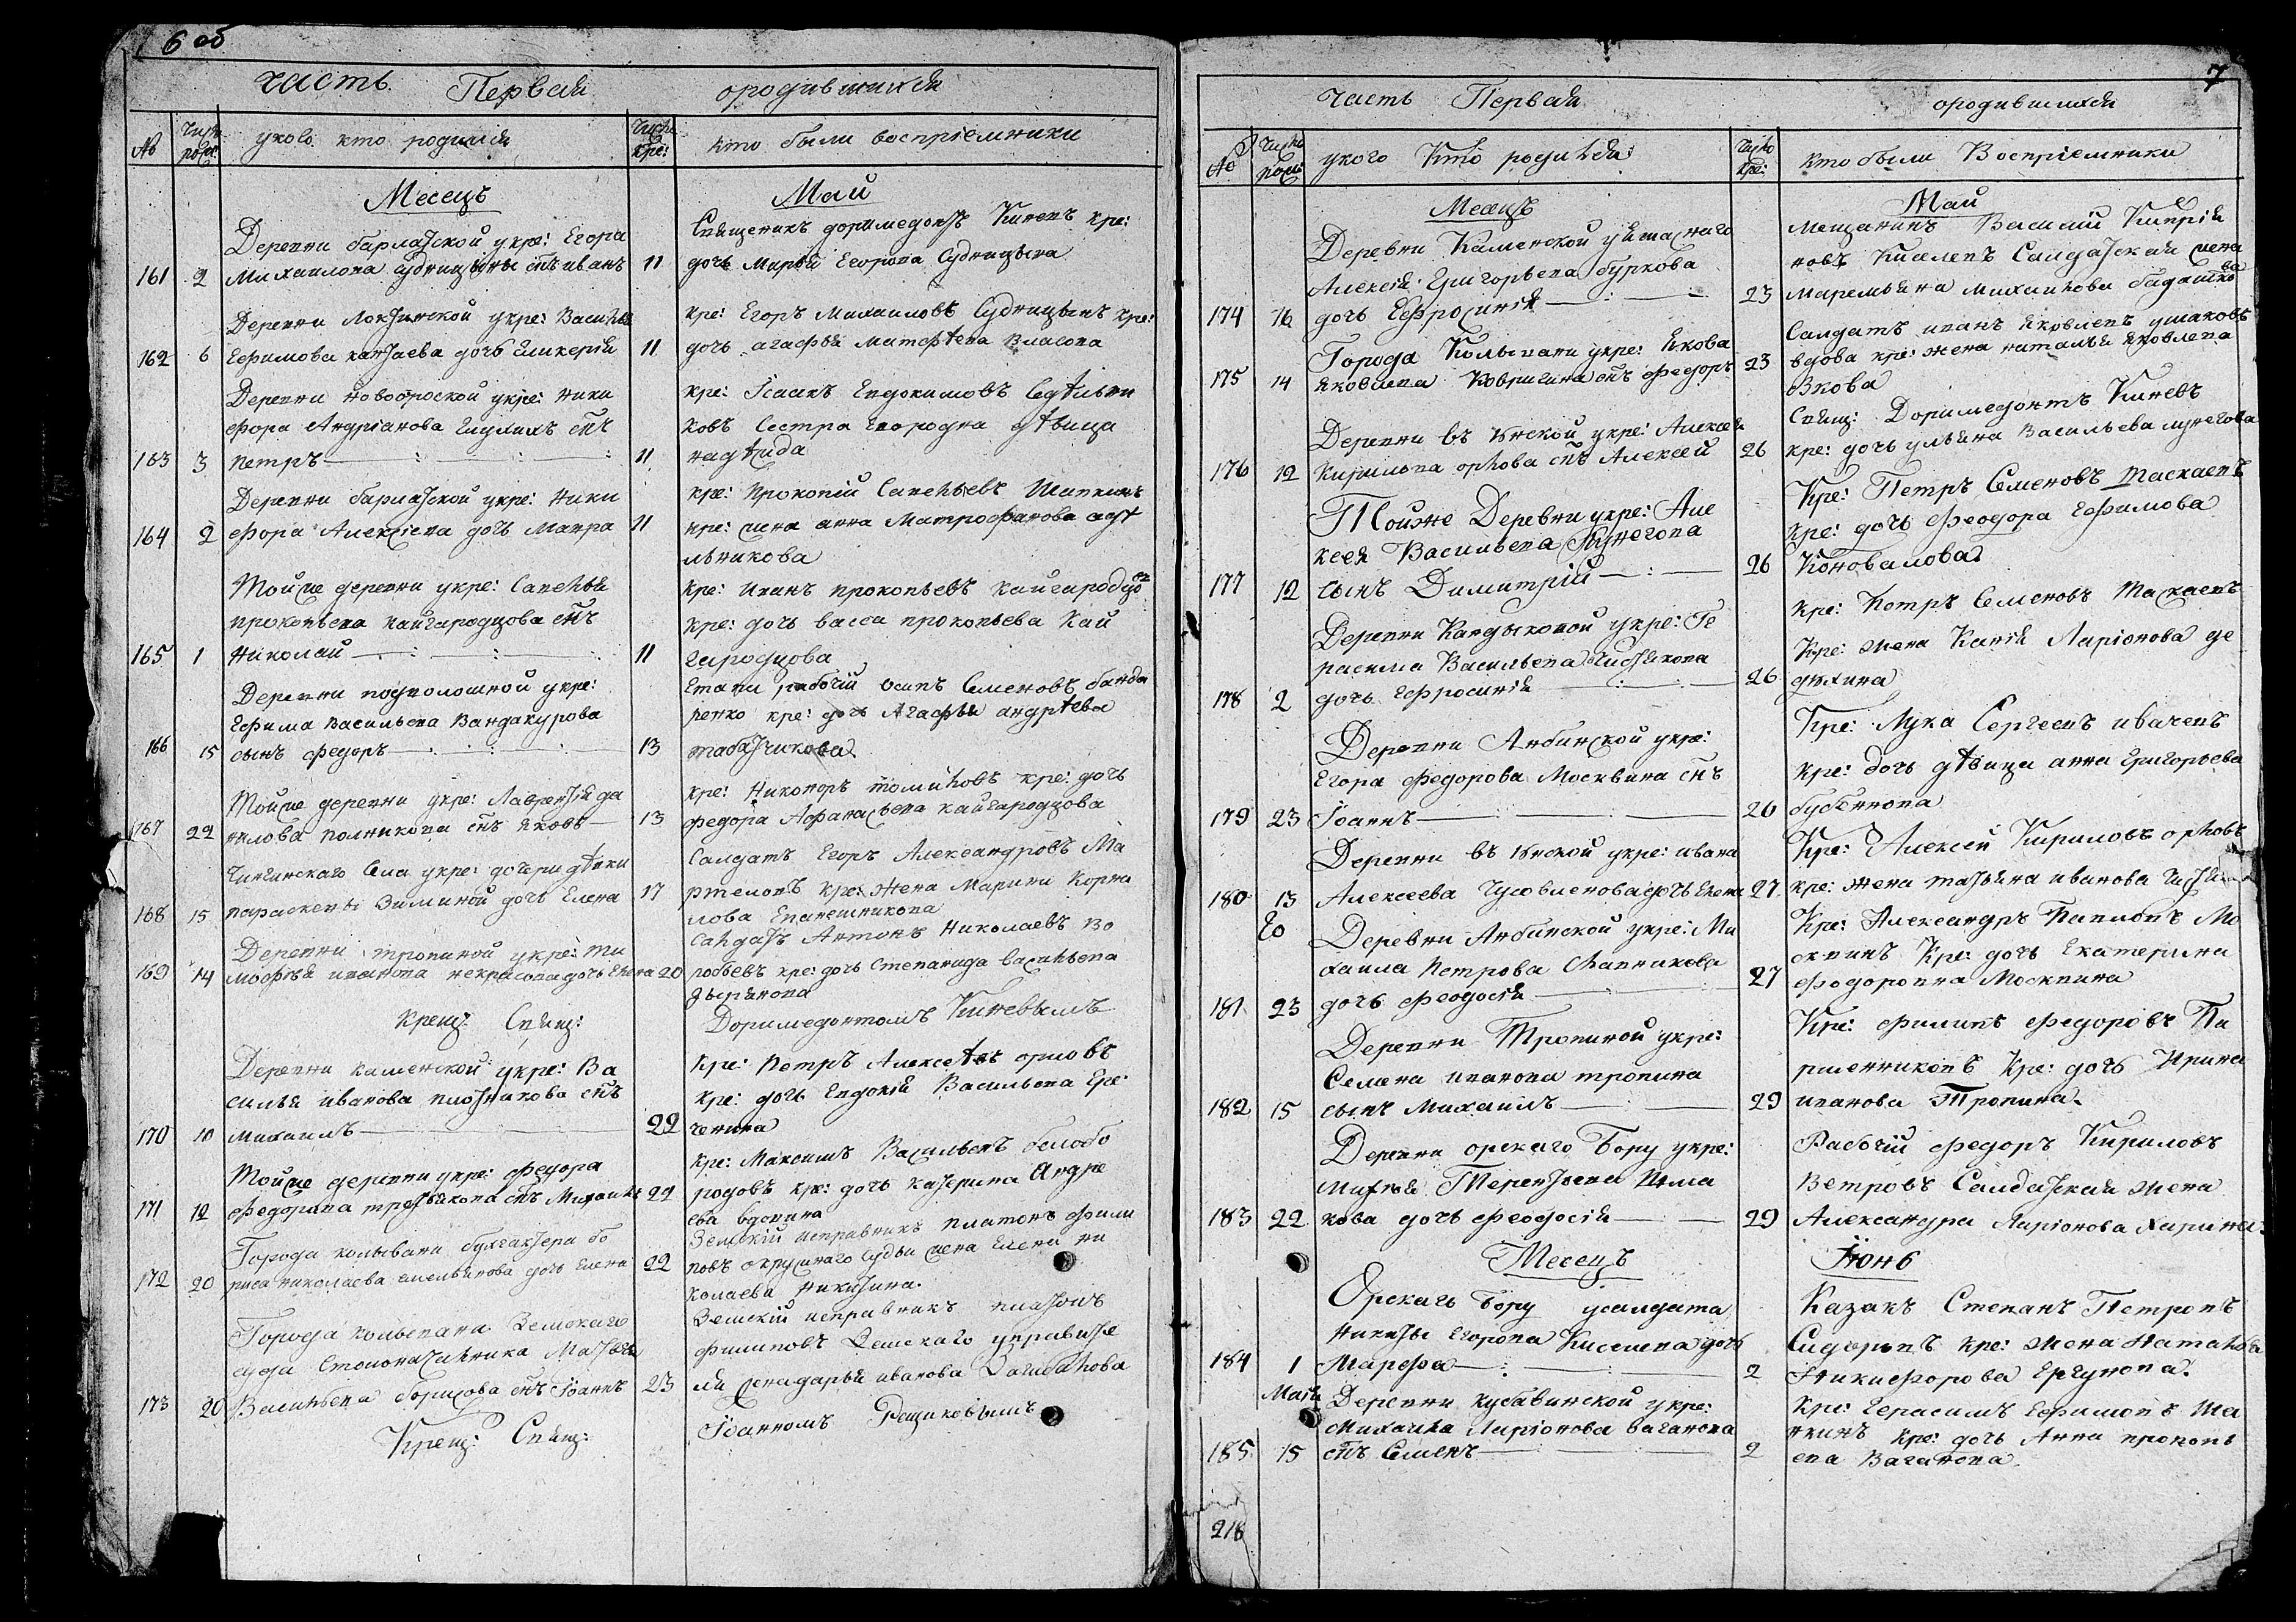 6 об
часть Первая ородившихся
№ Число рож: укого кто родился Число кре: кто были восприемники
Месецъ Май
Деревни барлатской укре: Егора
161 2 Михаилова Судницына снъ иванъ 11
Священикъ доримедонтъ Киневъ кре:
дочь Марья Егорова Судницына
Деревни Локтинской укре: Василья
162 6 Ефимова дочь Гликерія 11
кре: Егоръ Михаиловъ Судницынъ кре:
дочь агафья Матфѣева Власова
Деревни Новоороской укре: Ники
фора Андріанова Глухихъ снъ
163 3 петръ 11
кре: Ісаакъ Евдокимовъ Седѣльни
ковъ Сестра Егородна дѣвица
надѣжда
Деревни барлатской укре: Ники
164 2 фора Алексіева дочь Мавра 11
кре: Прокопій Савельевъ Шапкинъ
кре: жена анна Матрофанова седѣ
льникова
Тойже деревни укре: Савелья
прокопьева кайгародцова снъ
165 1 Николай 11
кре: Иванъ прокопьевъ кайгародцо
кре: дочь васса прокопьева Кай
гародцова
Деревни подволошной укре:
Ефима Васильева Вандакурова
166 15 сынъ федоръ 13
Етапи рабочій осипъ Семеновъ банда
ренко кре: дочь Агафья андрѣева
табатчикова
Тойже деревни укре: Лаврентія да
167 22 нилова полникова снъ яковъ 13
кре: Никоноръ томиловъ кре: дочь
федора Афанасьева кайгародцова
Чингинскаго Села укре: дочери дѣвки
168 15 параскевы Зиминой дочь Елена 17
Салдатъ Егоръ Александровъ Ма
ртемовъ кре: жена Марина Корни
лова Епанешникова
Деревни тропиной укре: ти
169 14 мофѣя иванова некрасова дочь Елена 20
Салдатъ Антонъ Николаевъ Во
робьевъ кре: дочь Степанида васильева
Зырянова
Крещ: Свящ: Доримедонтомъ Киневымъ
Деревни каменской укре: Ва
силья иванова плотникова снъ
170 10 михаилъ 22
Кре: Петръ Алексѣевъ орловъ
кре: дочь Евдокія Васильева Ере
менина
Тойже деревни укре: федора
171 12 федорова третьякова снъ Михаилъ 22
кре: Максимъ Васильевъ белобо
родовъ кре: дочь катерина Андре
ева вдовина
Города колывани бухгалтера бо
172 20 риса николаева емельянова дочь Елена 22
Земскій исправникъ платонъ фили
повъ окружнаго Судьи жена Елена ни
колаева Никитина.
Города колывани Земскаго
суда Столоначальника Матвея
173 20 Васильева борисова снъ Іоаннъ 23
Земскій исправникъ платонъ
филиповъ Земскаго управите
ля дарья иванова
Крещ: Свящ: Іоанномъ Рещиковымъ
7
часть Первая ородившихся
№ Число рож: укого Кто родился Число кре: кто были Восприемники
Месецъ Май
Деревни Каменской
Алексія Григорьева буркова
174 16 дочь Ефросинія 23
мещанинъ Василій Кипрія
новъ Киселевъ Салдатская жена
Маремьяна михаилова
Города Колывани укре: Якова
175 14 яковлева Ковригина снъ федоръ 23
Салдатъ иванъ яковлевъ ушаковъ
вдова кре: жена наталья яковлева
Деревни укре: Алексея
176 12 Кирилова орлова снъ Алексей 26
Свящ: Доримедонтъ Киневъ
кре: дочь ульяна Васильева лунегова
Тойже Деревни укре: Але
ксея Васильева Лунегова
177 12 сынъ Димитрій 26
Кре: Петръ Семеновъ таскаевъ
кре: дочь феодора Ефимова
Коновалова
Деревни Кандыковой укре: Ге
расима Васильева Чистякова
178 2 дочь Ефросинія 26
кре: Петръ Семеновъ Таскаевъ
Кре: жена Ксенія Ларіонова де
дюхина
Деревни Анбинской укре:
Егора федорова Москвина снъ
179 23 Іоаннъ 26
Кре: Лука Сергеевъ ивачевъ
кре: дочь дѣвица анна Григорьева
бубеннова
Деревни укре: ивана
180 13 Алексеева Чусовленова дочь Елена 27
Кре: Алексей Кириловъ орловъ
кре: жена татьяна иванова
Его Деревни Анбинской укре: Ми
хаила Петрова
181 23 дочь феодосія 27
Кре: Александръ Павловъ Мо
сквинъ Кре: дочь Екатерина
федоровна Москвина
Деревни Тропиной укре:
Семена иванова тропина
182 15 сынъ Михаилъ 29
Кре: филипъ федоровъ Па
ршенниковъ Кре: дочь Ирина
иванова Тропина.
Деревни орскаго Бору укре:
Матвея Терентьева
183 22 кова дочь феодосія 29
Рабочій федоръ Кириловъ
Ветровъ Салдатская жена
Александра Ларіонова Харина:
Месецъ Іюнь
Орскаго Бору усалдата
Никиты Егорова Киселева дочь
184 1 Марфа 2
Казакъ Степанъ Петровъ
Сидоровъ кре: жена Наталья
Никифорова Ергунова.
Маія Деревни кубавинской укре:
Михаила Ларіонова ваганова
185 15 снъ Семенъ 2
Кре: Герасимъ Ефимовъ Ша
нкинъ кре: дочь Анна прокопь
ева Ваганова
218